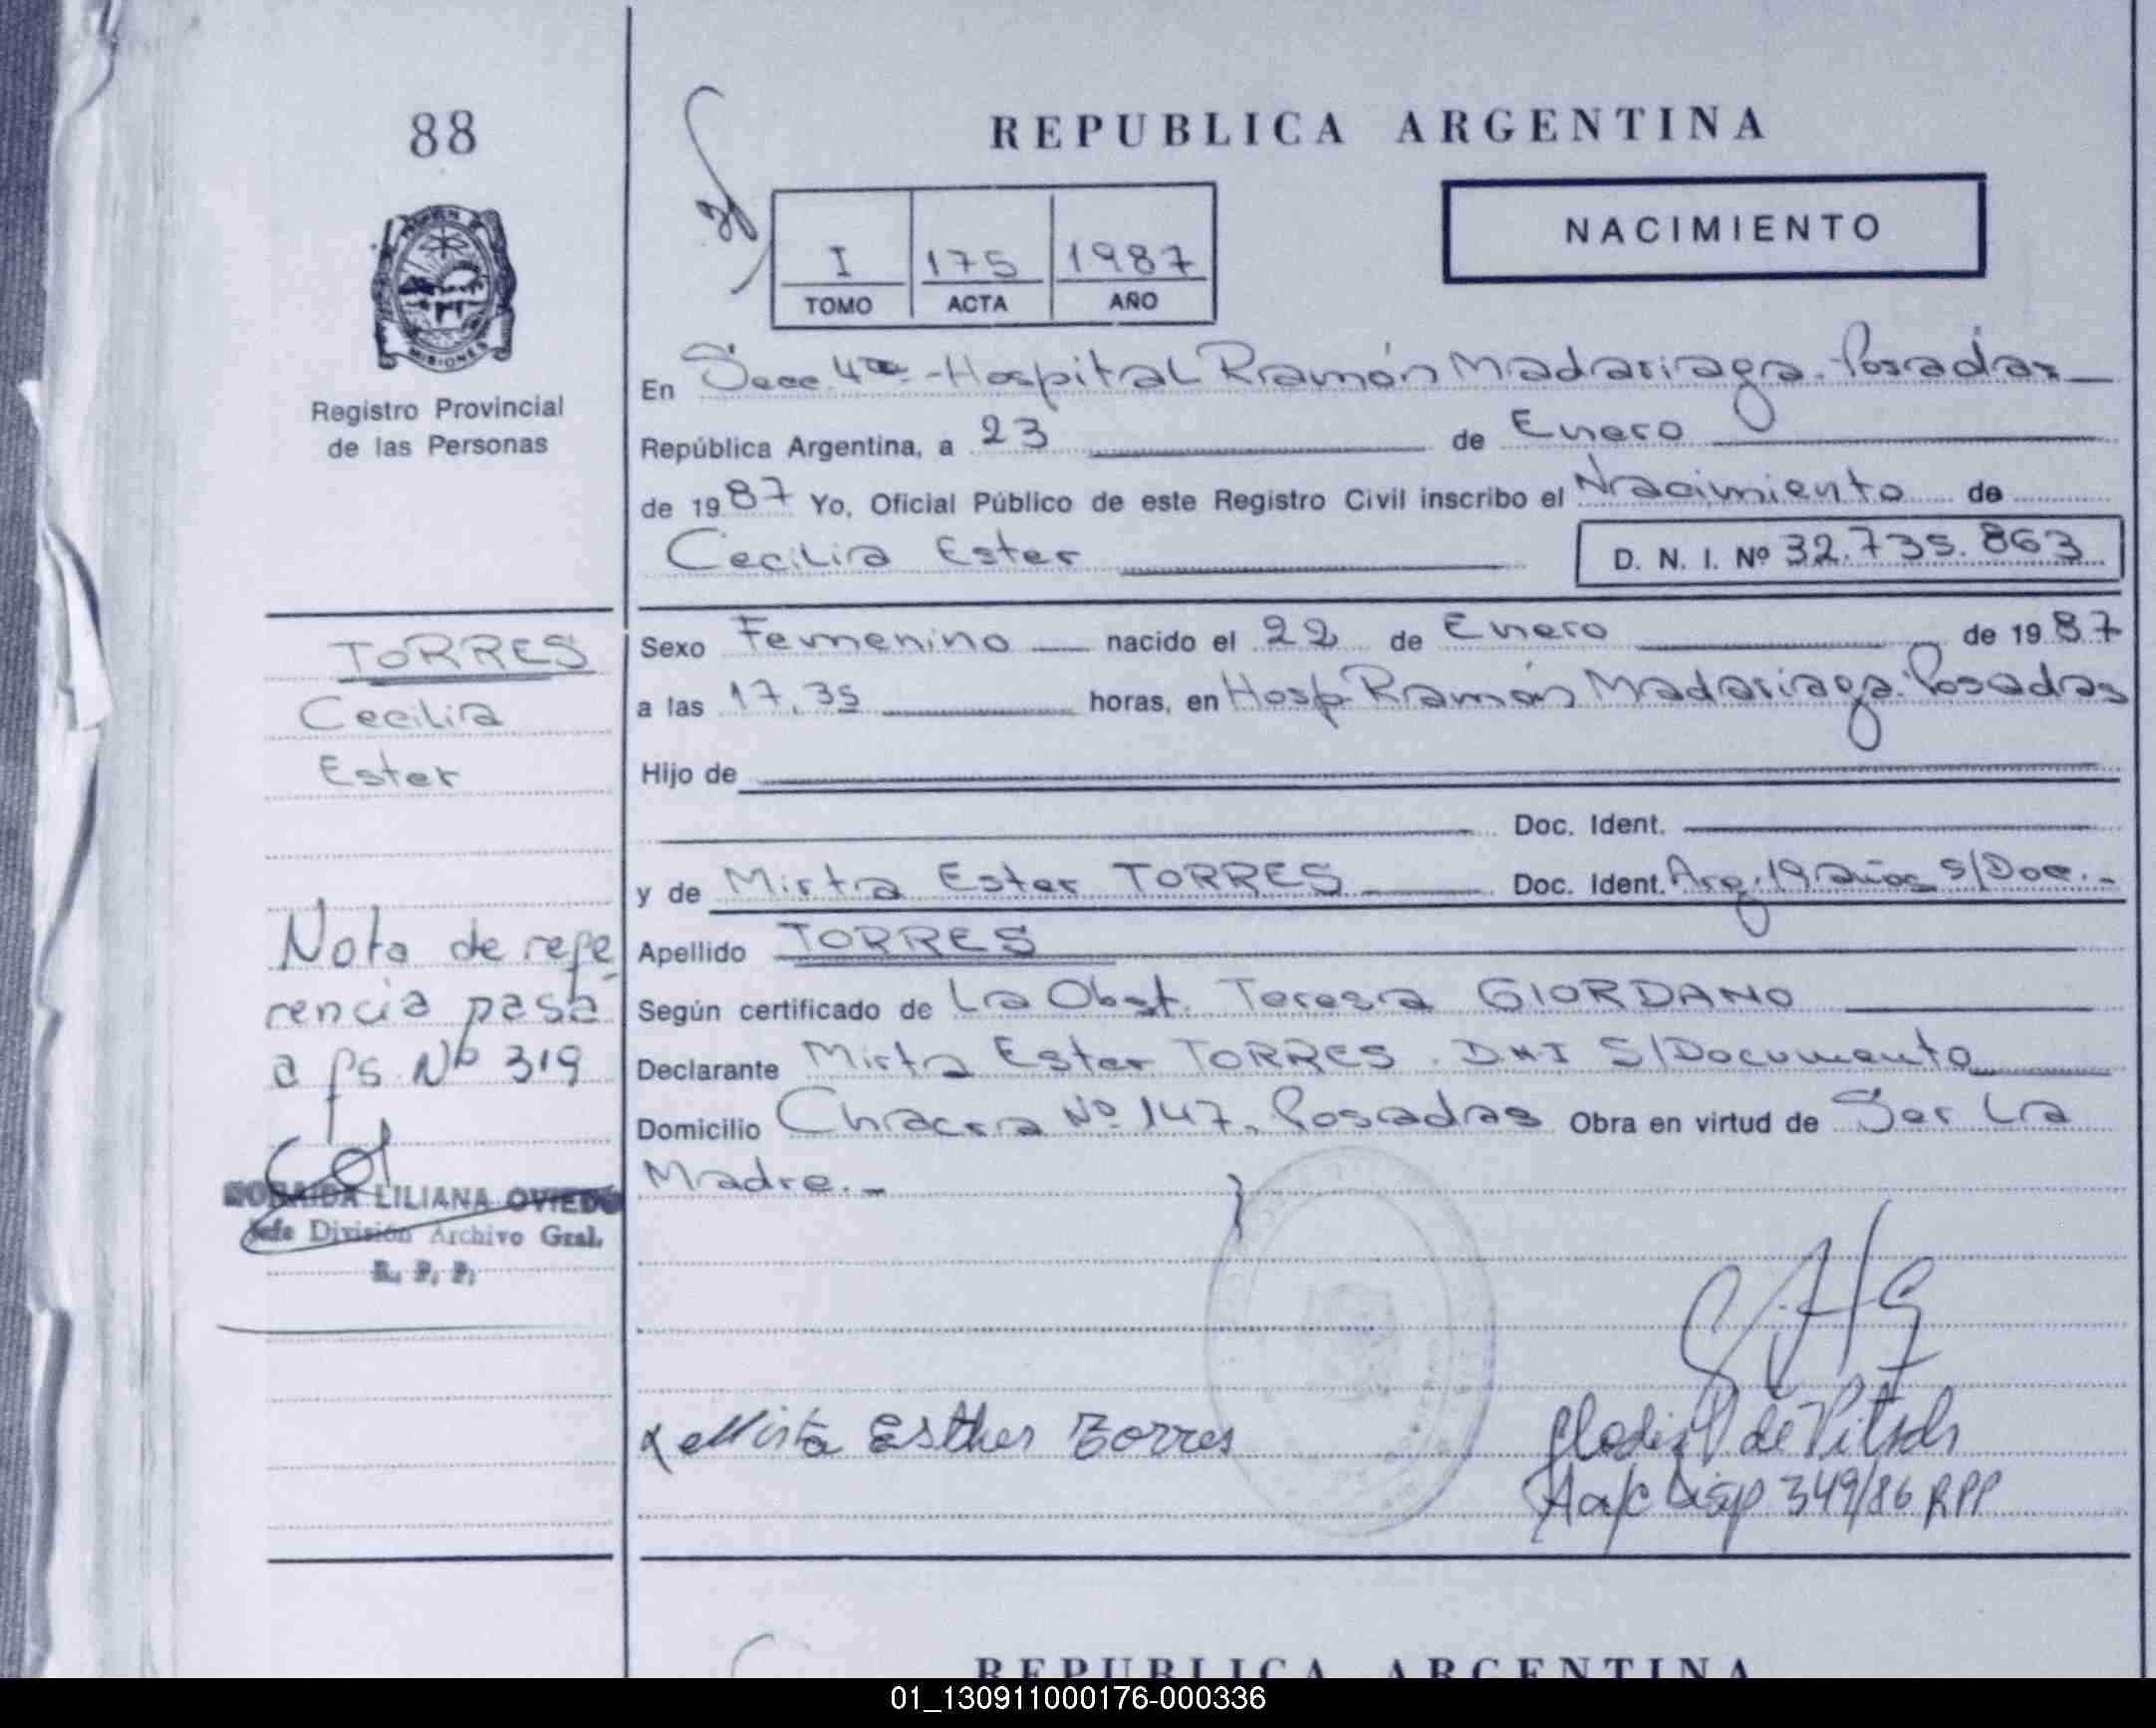 88
REPUBLICA ARGENTINA
NACIMIENTO
I 175 1987
TOMO ACTA AÑO
MISIONES
Registro Provincial
de las Personas
En Secc. 4ta - Hospital Ramón Madariaga - Posadas
República Argentina, a 23 de Enero
de 1987 Yo, Oficial Público de este Registro Civil inscribo el Nacimiento de
Cecilia Ester D. N. I. Nº 32.735.863
TORRES
Cecilia
Ester
Sexo Femenino nacido el 22 de Enero de 1987
a las 17,35 horas, en Hosp. Ramón Madariaga. Posadas
Hijo de
Doc. Ident.
y de Mirta Ester TORRES Doc. Ident. Arg. 19 años S/Doc.-
Apellido TORRES
Según certificado de La Obst. Teresa GIORDANO
Declarante Mirta Ester TORRES. DNI S/Documento
Domicilio Chacra Nº 147, Posadas Obra en virtud de Ser La
Madre.-
Nota de refe
rencia pasa
a fs. Nº 319
LILIANA OVIEDO
Jefe División Archivo Gral.
R. P. P.
x Mirta Esther Torres
de
A a/c Disp 349/86 RPP
REPUBLICA ARGENTINA
01_130911000176-000336